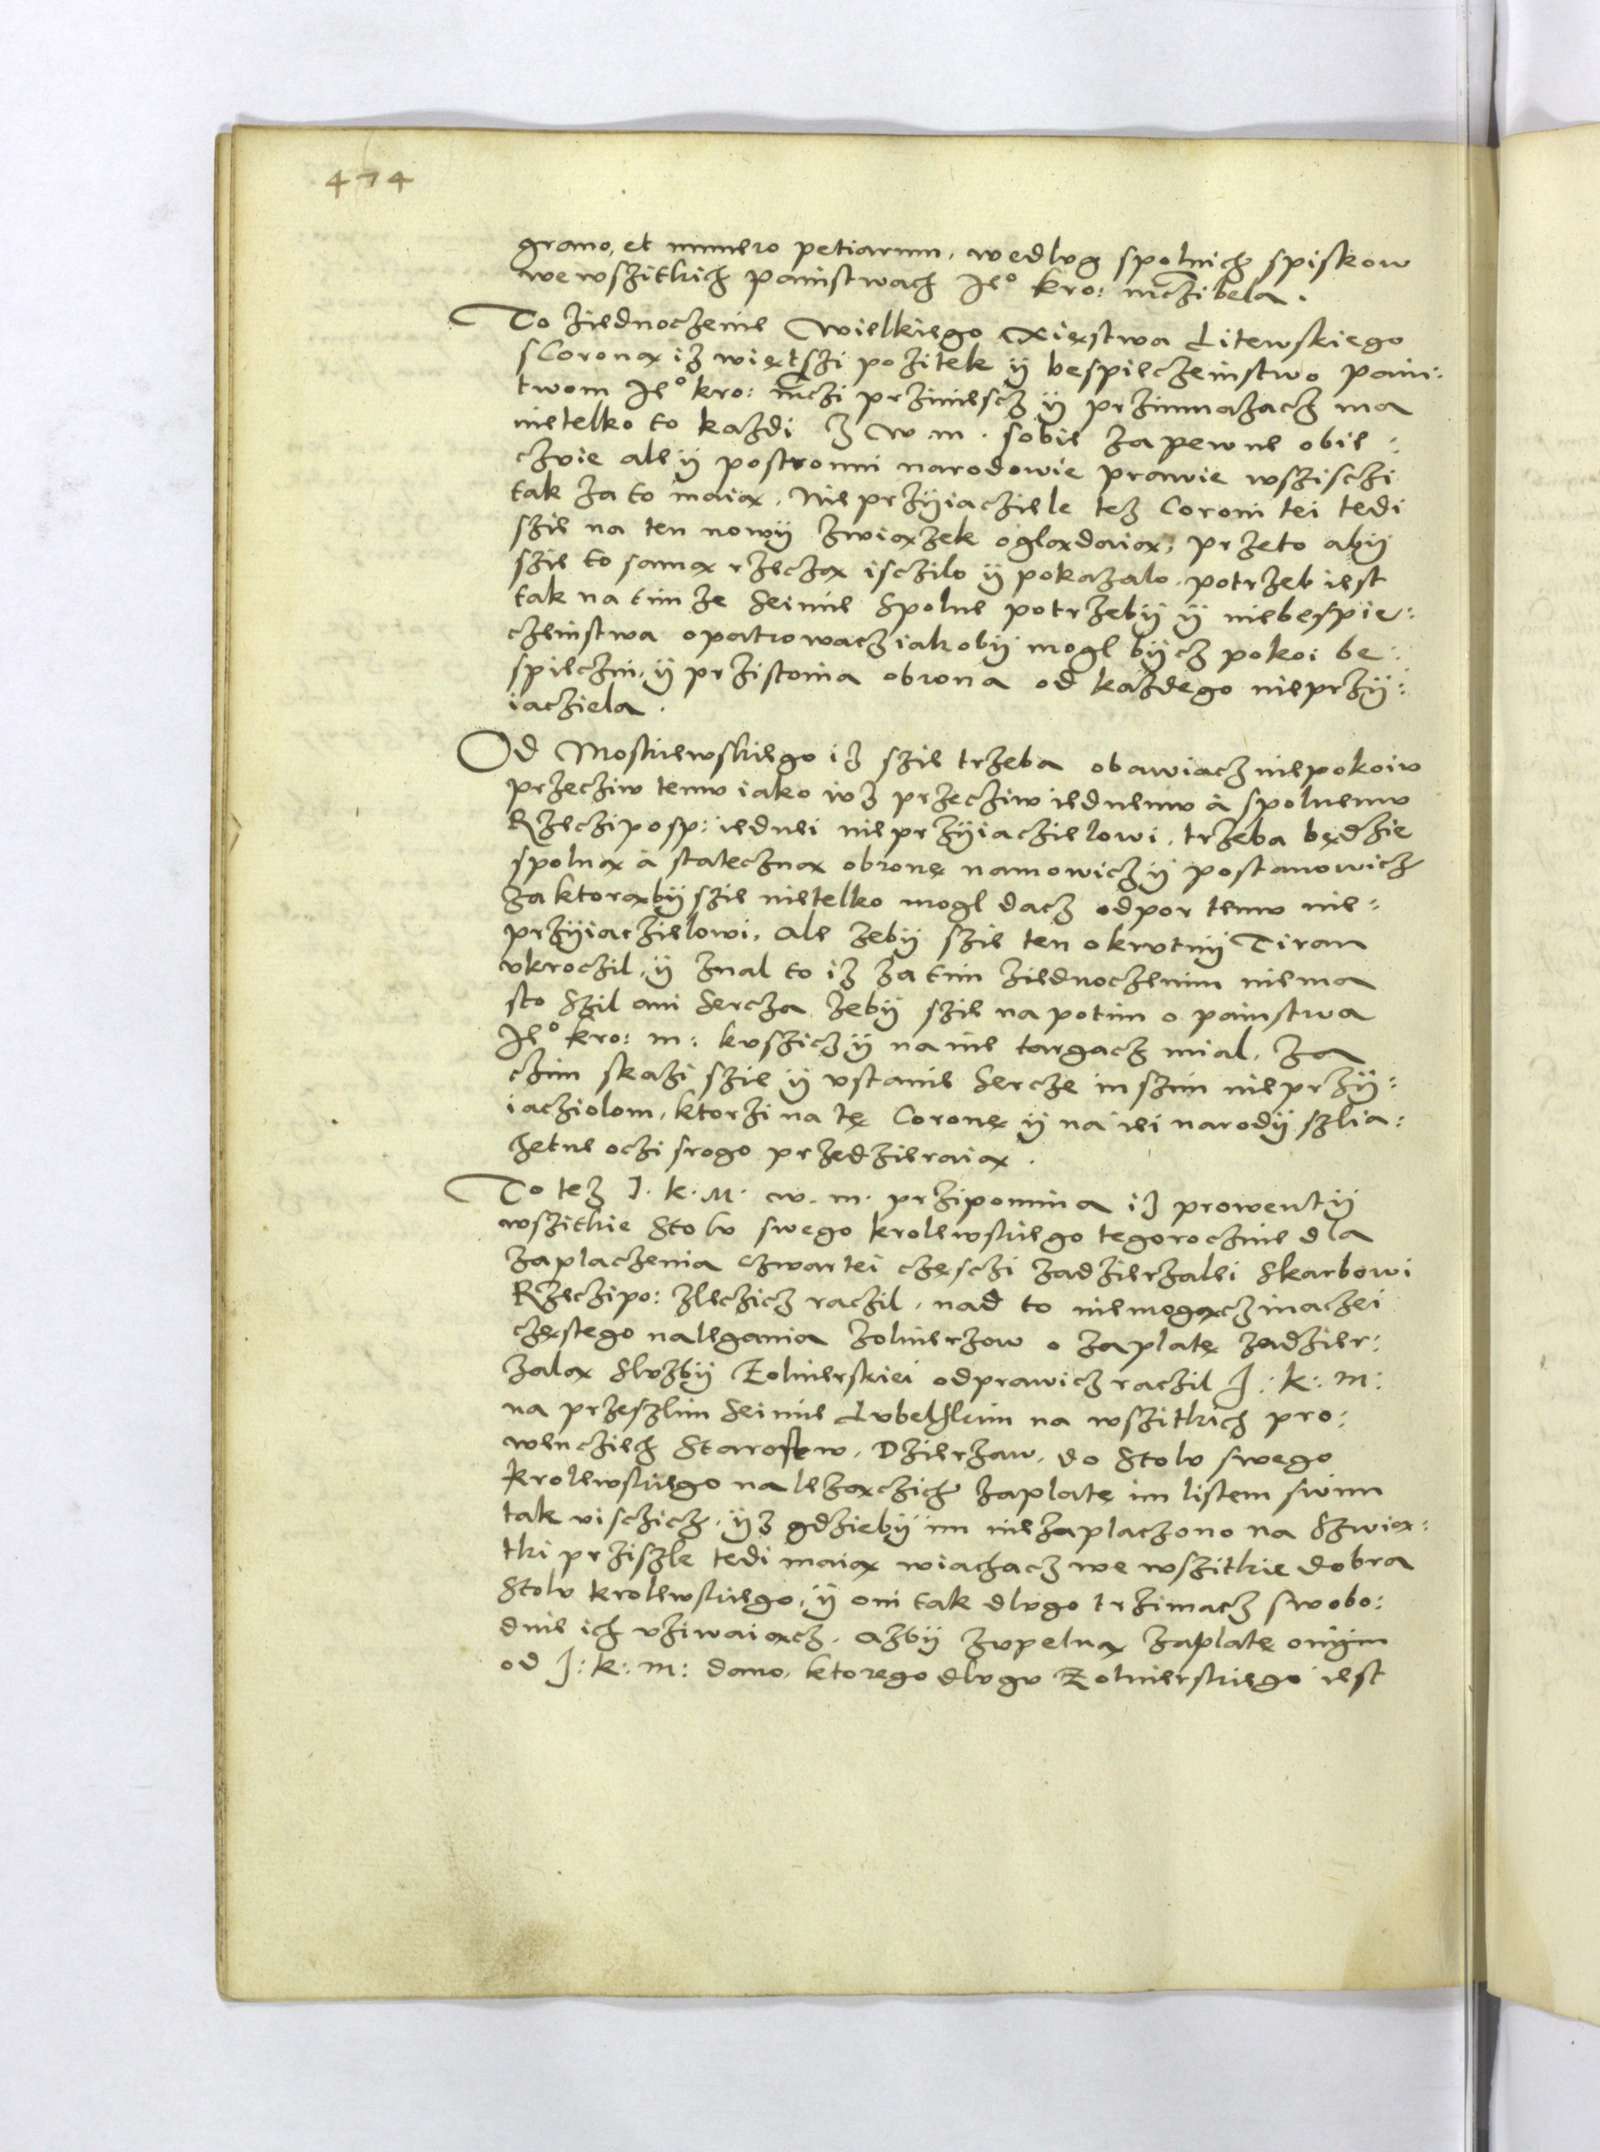 474
grano, et numero petiarum, wedlvg spolnich spiskow
we wszitkich painstwach Je° kro: mczi bela.
To ziednoczenie Wielkiego Xięstwa Litewskiego
sCoroną iz więtszi pozitek ÿ bespieczeinstwo pain:
twom Je° kro: mczi prziniescz ÿ przimnazacz ma
nietelko to kazdi z w. m. sobie za pewne obie:
czvie ale ÿ postronni narodowie prawie wszisczi
tak za to maią. Nieprzÿiacziele tez Coroni tei tedi
szie na ten nowÿ związek oglądaią, przeto abÿ
szie to samą rzeczą isczilo ÿ pokazalo. potrzeb iest
tak na tim ze Seimie Spolne potrzebÿ ÿ niebespie:
czeinstwa opatrowacz iakobÿ mogl bÿcz pokoi be:
spieczni, ÿ przistoina obrona od kazdego nieprzÿ:
iacziela.
Od Moskiewskiego iz szie trzeba obawiacz niepokoiv
przecziw temv iako ivz przecziw iednemv à spolnemv
Rzecziposp: iednei nieprzÿiaczielowi. trzeba będzie
spolną à stateczną obronę namowicz ÿ postanowicz
za ktorąbÿ szie nietelko mogl dacz odpor temv nie:
przÿiaczielowi, ale zebÿ szie ten okrvtnÿ Tiran
vkroczil, ÿ znal to iz za tim ziednoczenim niema
sto Szil ani Sercza zebÿ szie na potim o painstwa
Je° kro: m: kvszicz ÿ na nie targacz mial, za
czim skazi szie ÿ vstanie Sercze inszim nieprzÿ:
iacziolom, ktorzi na tę Coronę ÿ na iei narodÿ szlia:
zetne oczi srogo przedzieraią.
To tez J. K. M. w. m. przipomina iz prowentÿ
wszitkie Stolv swego krolewskiego tegorocznie dla
zaplaczenia czwartei częsczi zadzierzalei Skarbowi
Rzeczipo: zleczicz raczil, nad to niemogącz inaczei
częstego nalegania zolnierzow o zaplatę zadzier:
zalą Slvzbÿ Zolnierskiei odprawicz raczil J: K: M:
na przeszlim Seimie Lvbelskim na wszitkich pro:
wencziech Starostw, Dzierzaw, do Stolv swego
krolewskiego nalezączich zaplatę im listem swim
tak visczicz, ÿz gdziebÿ im niezaplaczono na Szwią:
tki prziszle tedi maią wiachacz we wszitkie dobra
Stolv krolewskiego, ÿ oni tak dlvgo trzimacz swobo:
dnie ich vziwaiącz. azbÿ zvpelną zaplatę onÿm
od J: K: M: dano, ktorego dlvgv Zolnierskiego iest